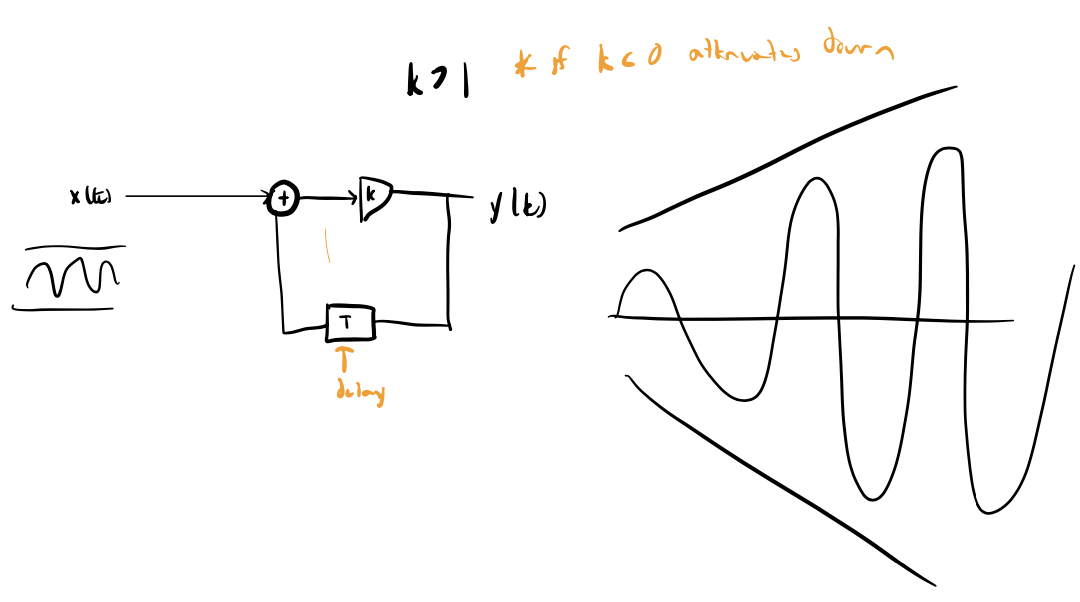 k > 1
* if k < 0 attenuates down
x(t)
+
k
y(t)
T
delay